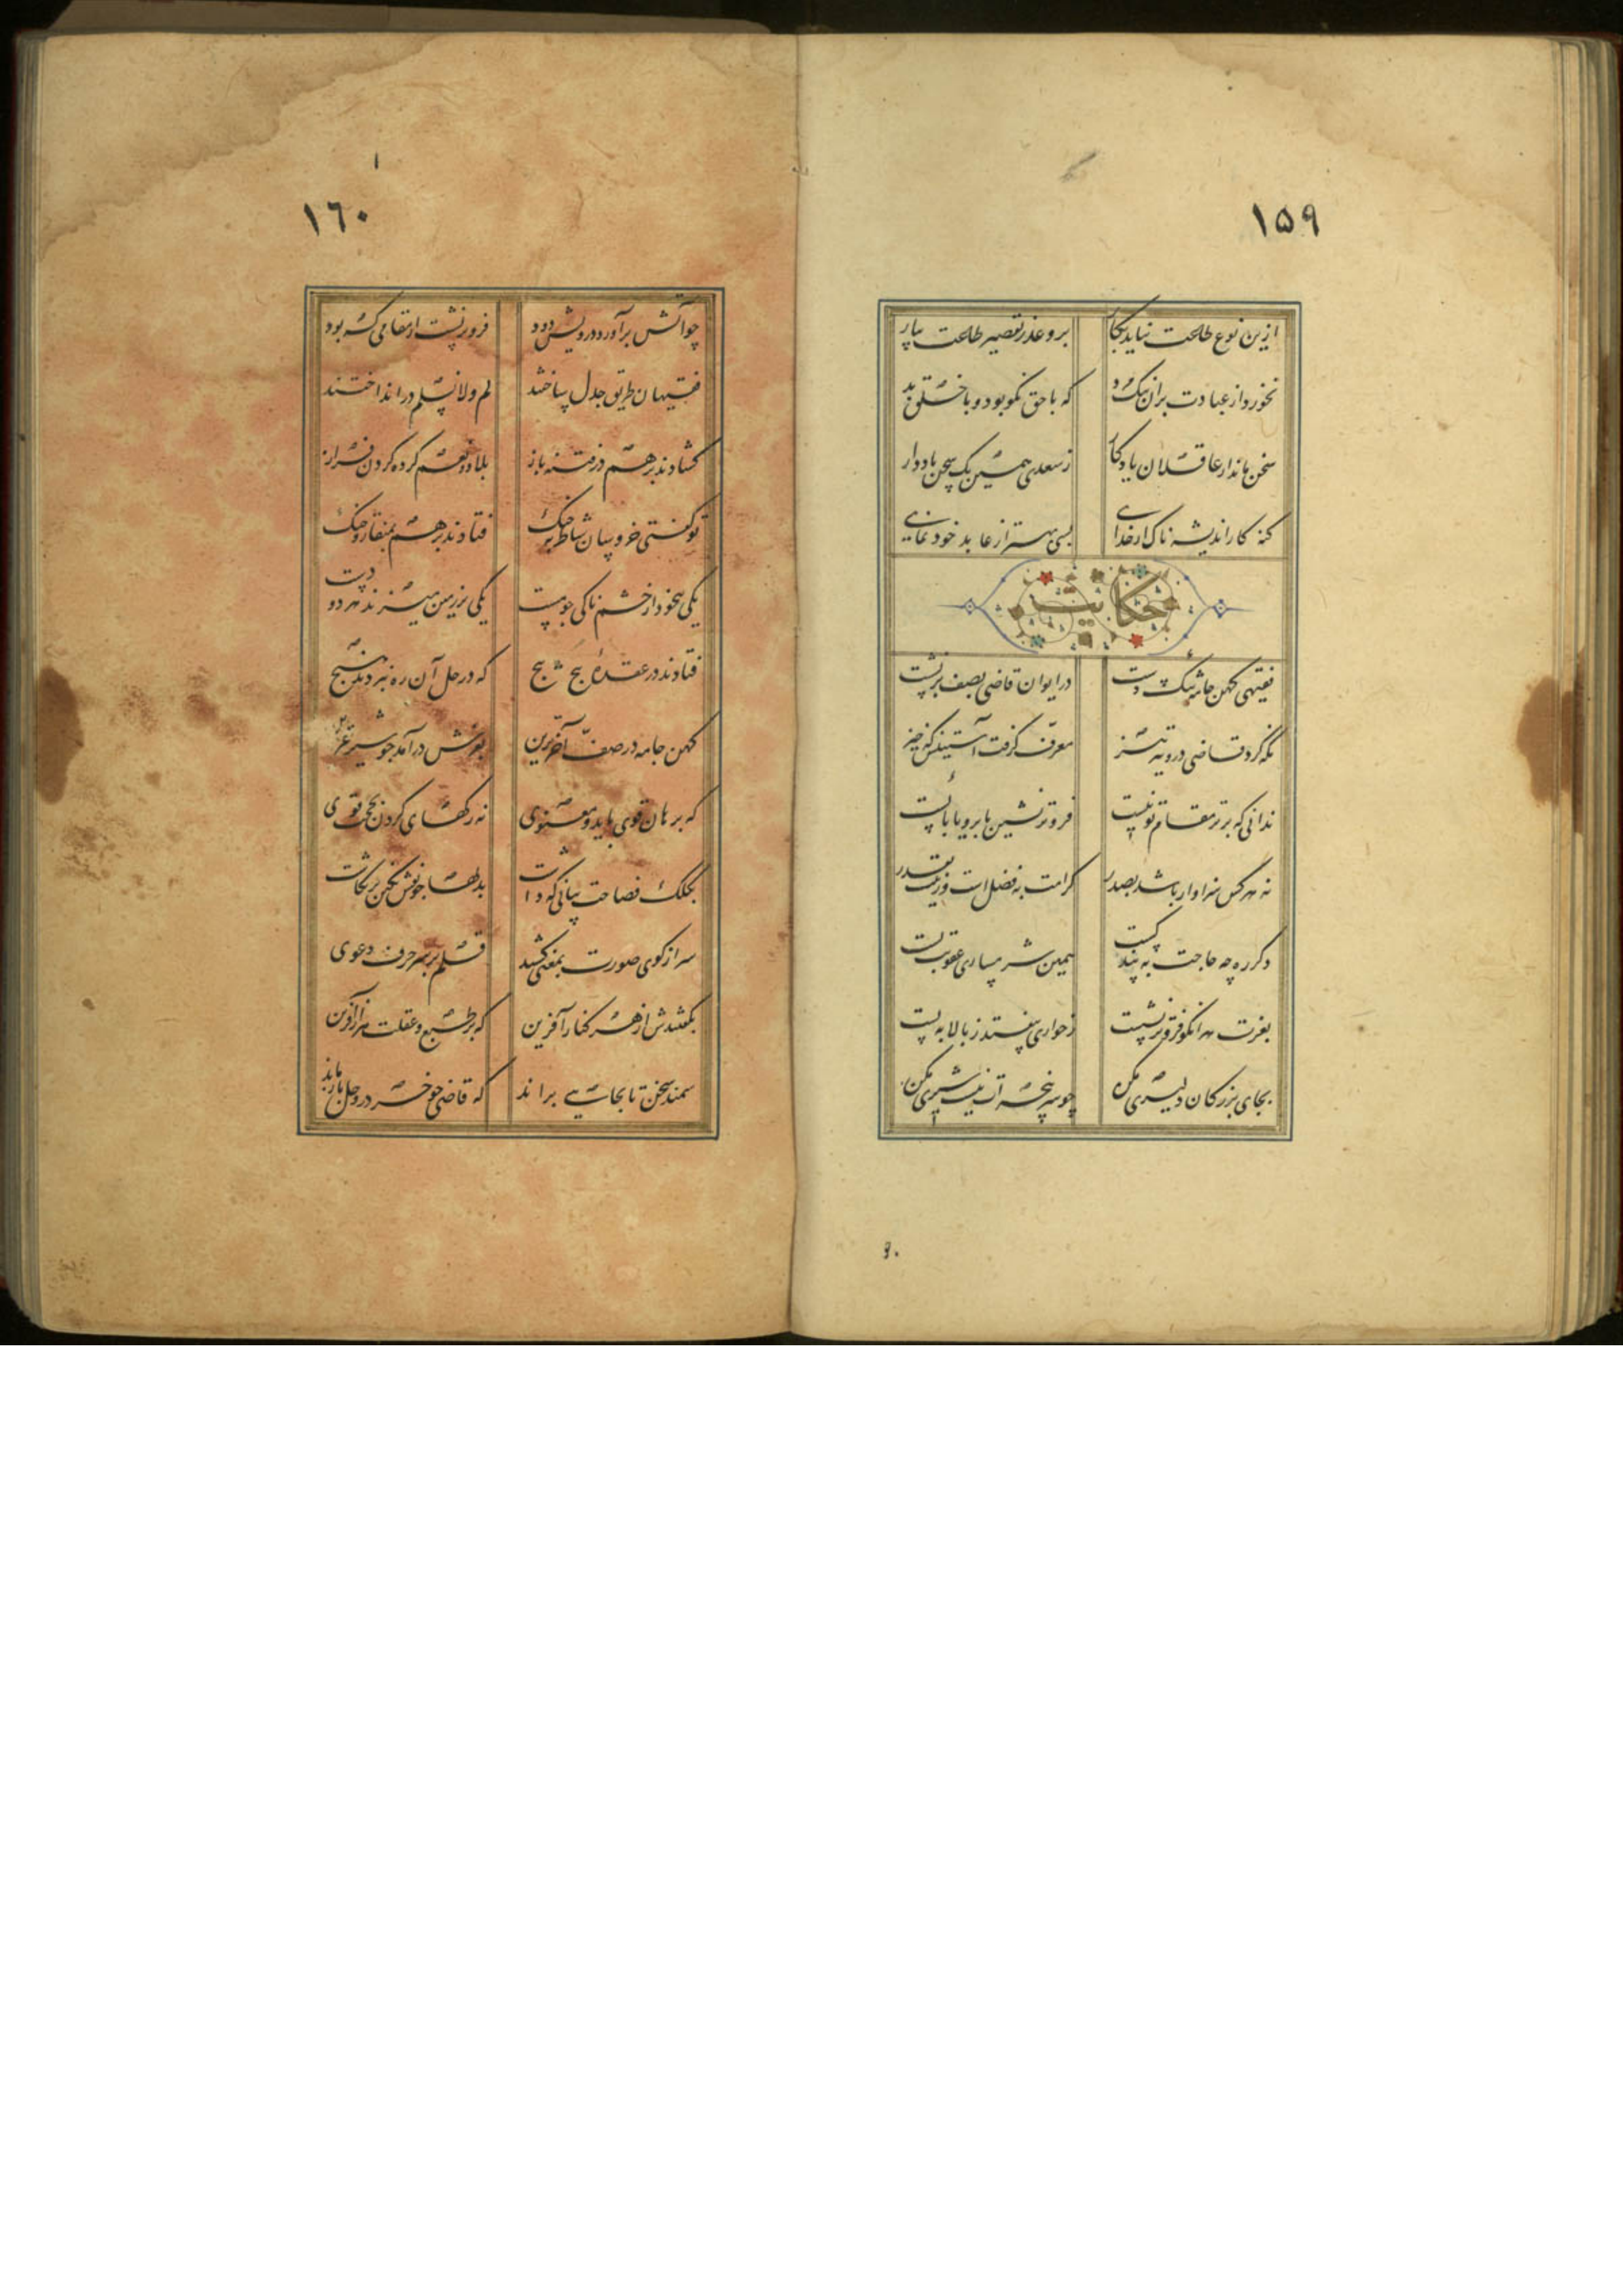 ۱۵۹
ازین نوع طاعت نیاید بکار برو عذر تقصیر طاعت بیار
نخورد از عبادت بران بیخرد که با حق نکو بود و با خلق بد
سخن ماند از عاقلان یادکار ز سعدی همین یک سخن یاد دار
کنه کار اندیشه ناک از خدای بسی بهتر از عابد خود نمای
حکایت
فقیهی کهن جامه تنک دست در ایوان قاضی بصف بر نشست
نکه کرد قاضی درو تیز تیز معرف کرفت آستینش که خیز
ندانی که برتر مقام تو نیست فروتر نشین یا برو یا بایست
نه هر کس سزاوار باشد بصدر کرامت به فضل است و رتبت بقدر
دکر ره چه حاجت به پند کست همین شرمساری عقوبت بست
بعزت هر انکو فروتر نشست ز خواری نیفتد ز بالا به پست
بجای بزرکان دلیری مکن چو سر پنجه ات نیست شیری مکن
۹۰
۱
۱٦۰
چو آتش برآورد درویش دود فروتر نشست از مقامی که بود
فقیهان طریق جدل ساختند لم و لا نسلم در انداختند
کشادند برهم در فتنه باز بلا و نعم کرده کردن فراز
تو کفتی خروسان شاطر بجنک فتادند برهم بمنقار و چنک
یکی بیخود از خشم ناکی چو مست یکی بر زمین میزند هر دو دست
فتادند در عقدهٔ پیچ پیچ که در حل آن ره نبردند هیچ
کهن جامه در صف آخرترین بغرش درآمد چو شیر عرین
که برهان قوی باید و معنوی نه رکهای کردن بحجت قوی
بکلک فصاحت بیانی که داشت بدلها چو نقش نکین بر نکاشت
سر از کوی صورت بمعنی کشید قلم بر سر حرف دعوی
بکفتندش از هر کنار آفرین که بر طبع و عقلت هزار آفرین
سمند سخن تا بجایی براند که قاضی چو خر در وحل باز ماند